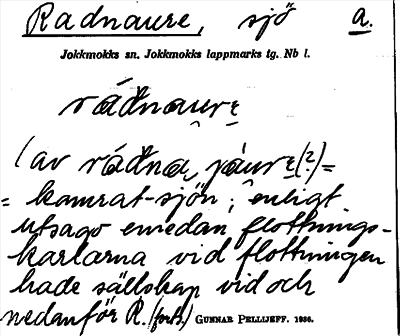 Radnaure, sjö a.
Jokkmokks sn. Jokkmokks lappmarks tg. Nb l.
ráđnaurε
(av ráđna, jáurε(?)=
= kamrat-sjön; enligt
utsago emedan flottnings-
karlarna vid flottningen
hade sällskap vid och
nedanför R. (forts.) GUNNAR PELLIJEFF. 1936.